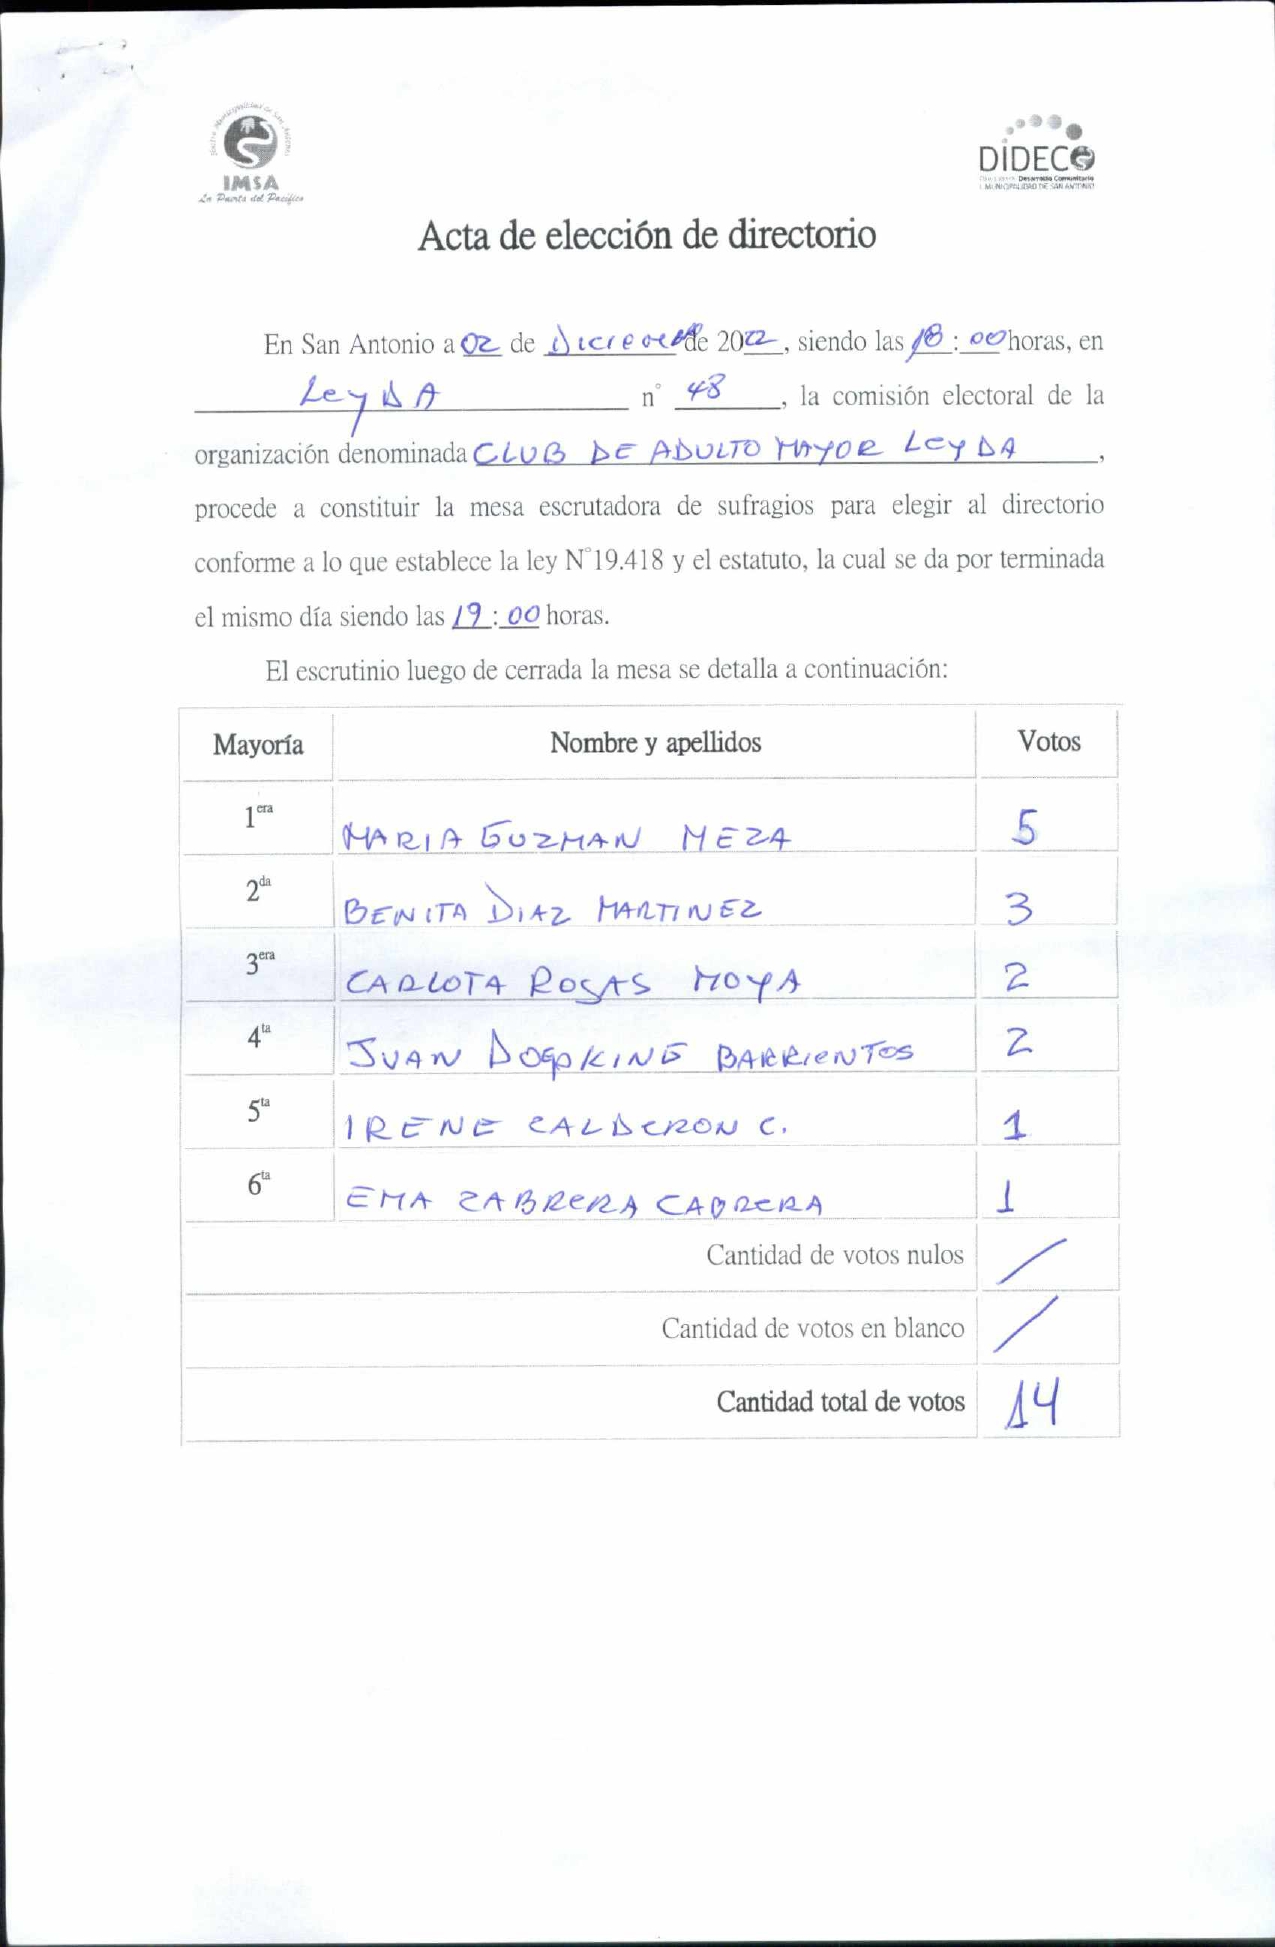 Ilustre Municipalidad de San Antonio
IMSA
La Puerta del Pacífico
DIDECO
Desarrollo Comunitario
I. MUNICIPALIDAD DE SAN ANTONIO
Acta de elección de directorio
En San Antonio a 02 de Diciembre de 2022, siendo las 18:00 horas, en
LeyDA n° 48, la comisión electoral de la
organización denominada CLUB DE ADULTO MAYOR LeyDA,
procede a constituir la mesa escrutadora de sufragios para elegir al directorio
conforme a lo que establece la ley N°19.418 y el estatuto, la cual se da por terminada
el mismo día siendo las 19:00 horas.
El escrutinio luego de cerrada la mesa se detalla a continuación:
Mayoría Nombre y apellidos Votos
1era MARIA GUZMAN MEZA 5
2da BENITA DIAZ MARTINEZ 3
3era CARLOTA ROSAS MOYA 2
4ta JUAN BARRIENTOS 2
5ta IRENE CALDERON C. 1
6ta EMA CABRERA CABRERA 1
Cantidad de votos nulos /
Cantidad de votos en blanco /
Cantidad total de votos 14